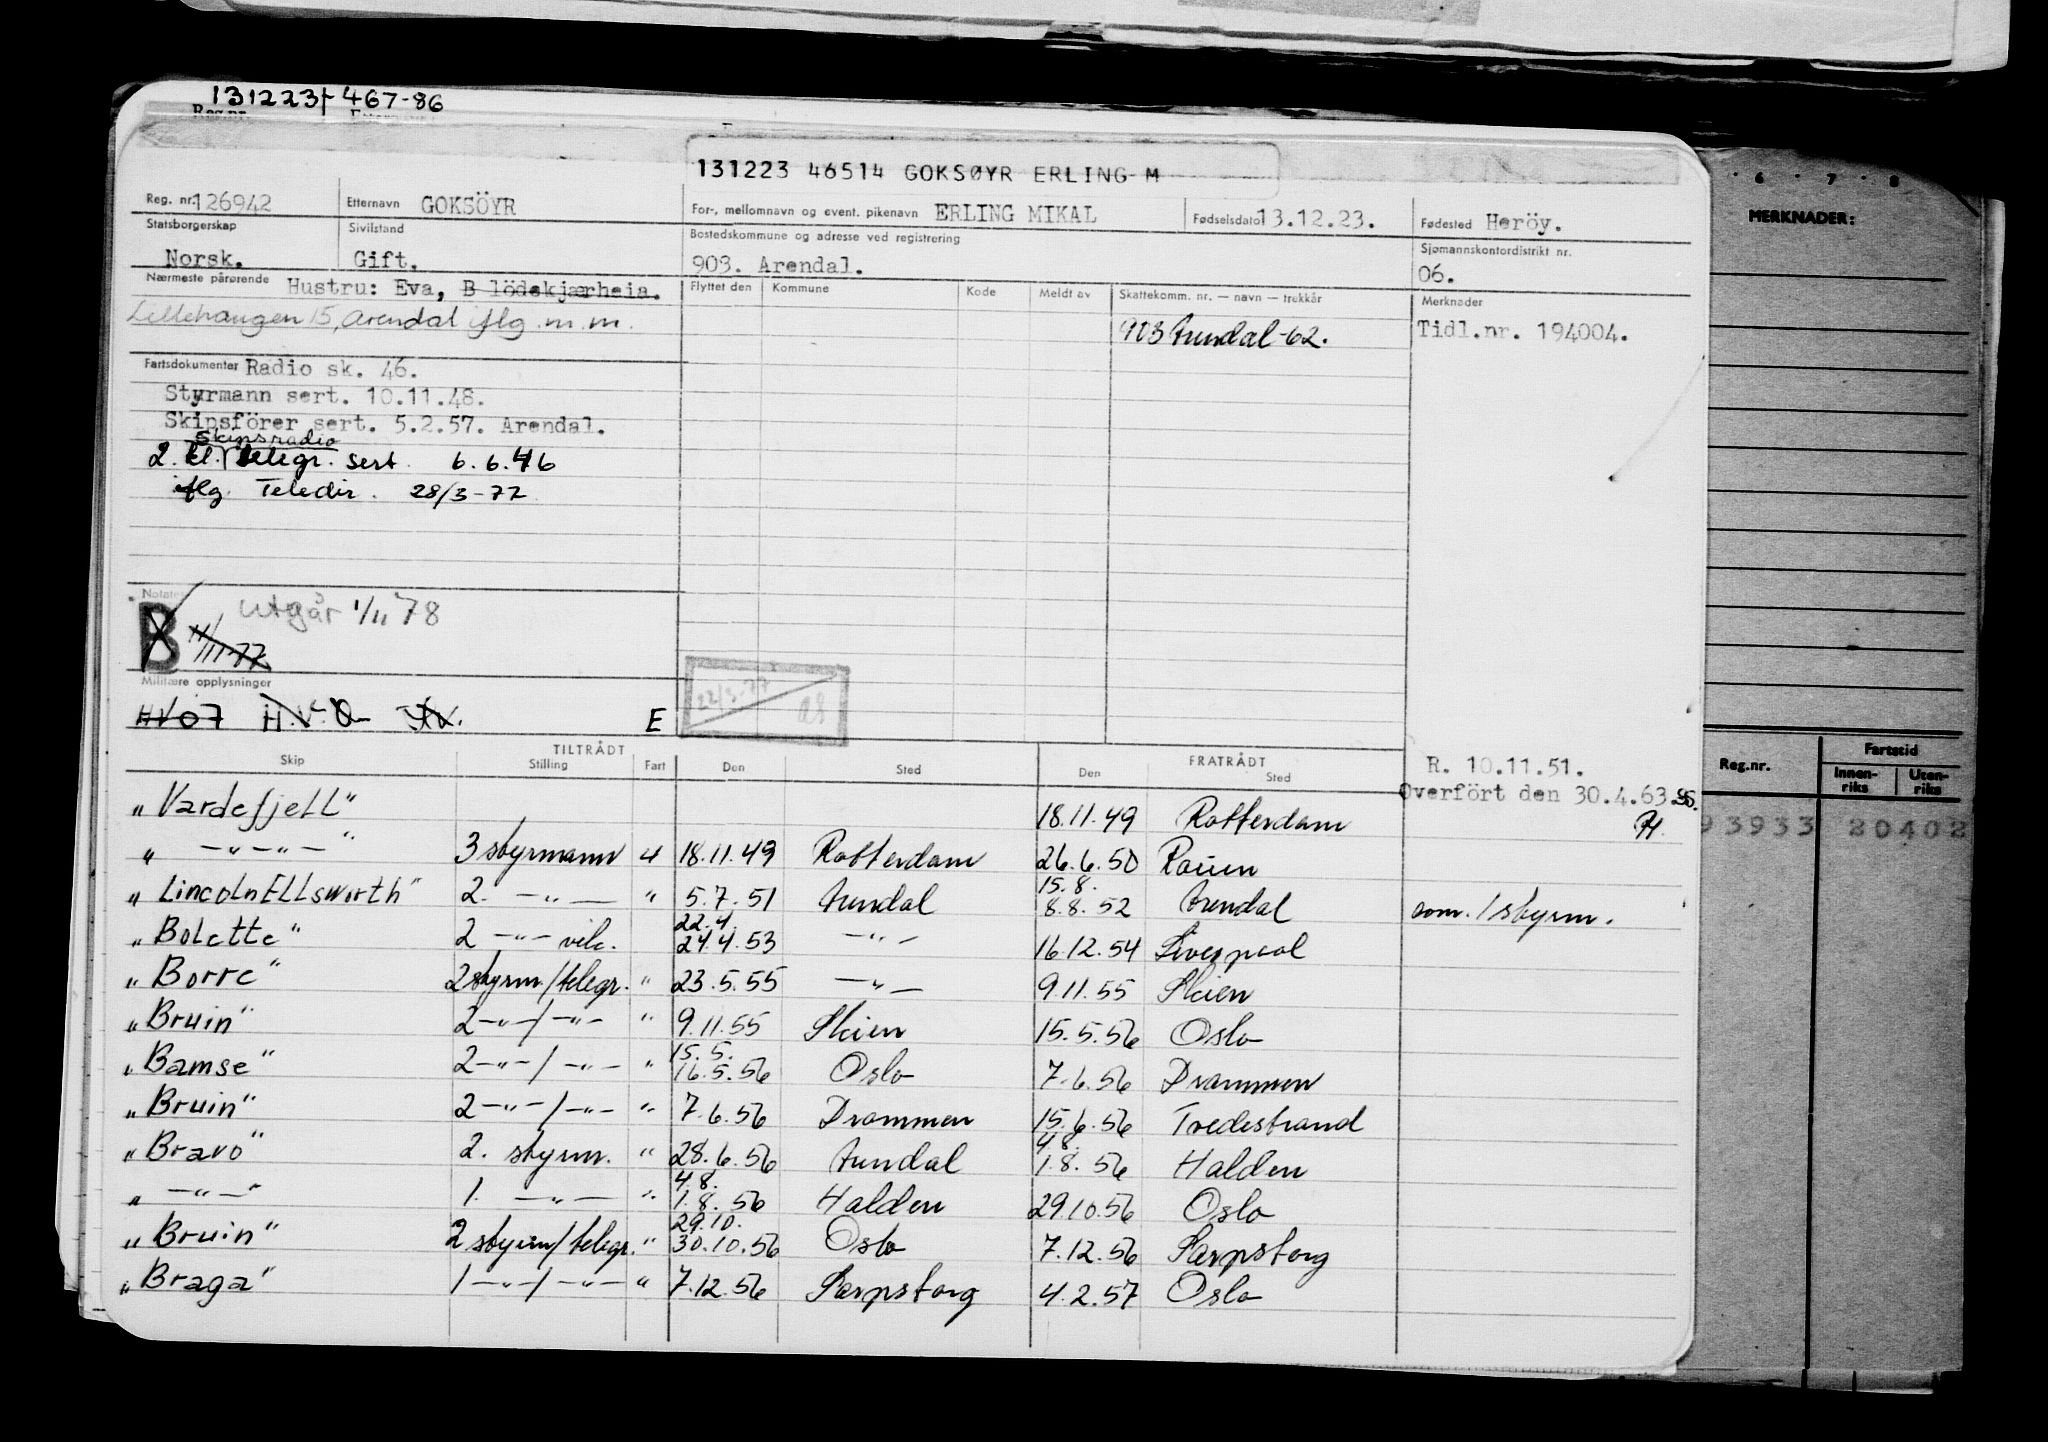 131223 - 467-86
131223 46514 GOKSØYR ERLING M
Reg. nr. 126942 Etternavn GOKSÖYR For-, mellomnavn og event. pikenavn ERLING MIKAL Fødselsdato 13.12.23. Fødested Heröy.
Statsborgerskap Sivilstand Bostedskommune og adresse ved registrering Sjømannskontordistrikt nr.
Norsk. Gift. 903. Arendal. 06.
Nærmeste pårørende Hustru: Eva, B lödekjærheia. Flyttet den Kommune Kode Meldt av Skattekomm. nr. — navn — trekkår Merknader
Lillehaugen 15, Arendal iflg. m.m. 903 Arendal-62. Tidl.nr. 194004.
Fartsdokumenter Radio sk. 46.
Styrmann sert. 10.11.48.
Skipsförer sert. 5.2.57. Arendal.
skipsradio
2. kl. telegr. sert. 6.6.46
iflg. Teledir. 28/3-77
Notater
B utgår 1/11 78
11/11-77
22/3-77
Militære opplysninger
HV07 H.V. E
TILTRÅDT FRATRÅDT
Skip Stilling Fart Den Sted Den Sted
R. 10.11.51.
Overfört den 30.4.63.
"Vardefjell" 18.11.49 Rotterdam
" —"—"— " 3 styrmann u 18.11.49 Rotterdam 26.6.50 Rouen
15.8.
"Lincoln Ellsworth" 2. —"— " 5.7.51 Arendal 8.8.52 Arendal som. 1 styrm.
22.4.
"Bolette" 2 —"— vik. 24.4.53 —"— 16.12.54 Liverpool
"Borre" 2 styrm/telegr. " 23.5.55 —"— 9.11.55 Skien
"Bruin" 2 —"—/—"— " 9.11.55 Skien 15.5.56 Oslo
15.5.
"Bamse" 2 —"—/—"— " 16.5.56 Oslo 7.6.56 Drammen
"Bruin" 2 —"—/—"— " 7.6.56 Drammen 15.6.56 Tvedestrand
4.8.
"Bravo" 2. styrm. " 28.6.56 Arendal 1.8.56 Halden
4.8.
" —"— " 1. —"— " 1.8.56 Halden 29.10.56 Oslo
29.10.
"Bruin" 2 styrm/telegr. " 30.10.56 Oslo 7.12.56 Sarpsborg
"Braga" 1 —"—/—"— " 7.12.56 Sarpsborg 4.2.57 Oslo
6 7 8
MERKNADER:
Reg.nr. Fartstid
Innen-riks Uten-riks
93933 20402